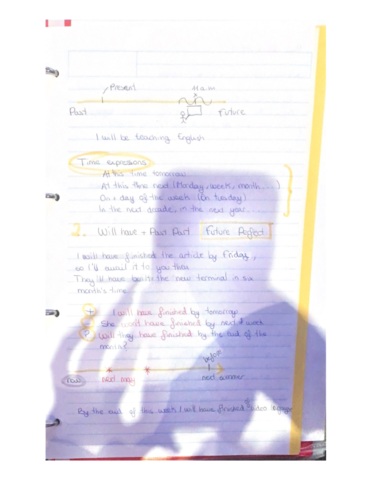 Present
11 a.m
Past
Future
I will be teaching English
Time expressions
At this time tomorrow
At this time next (Monday, week, month....)
On a day of the week (On Tuesday)
In the new decade, in the new year.....
2. Will have + Past Part Future Perfect
I will have finished the article by Friday,
so I'll email it to you then
They'll have built the new terminal in six
month's time
I will have finished by tomorrow
She won't have finished by next week
Will they have finished by the end of the
month?
before
Now next may next summer
By the end of this week I will have finished video